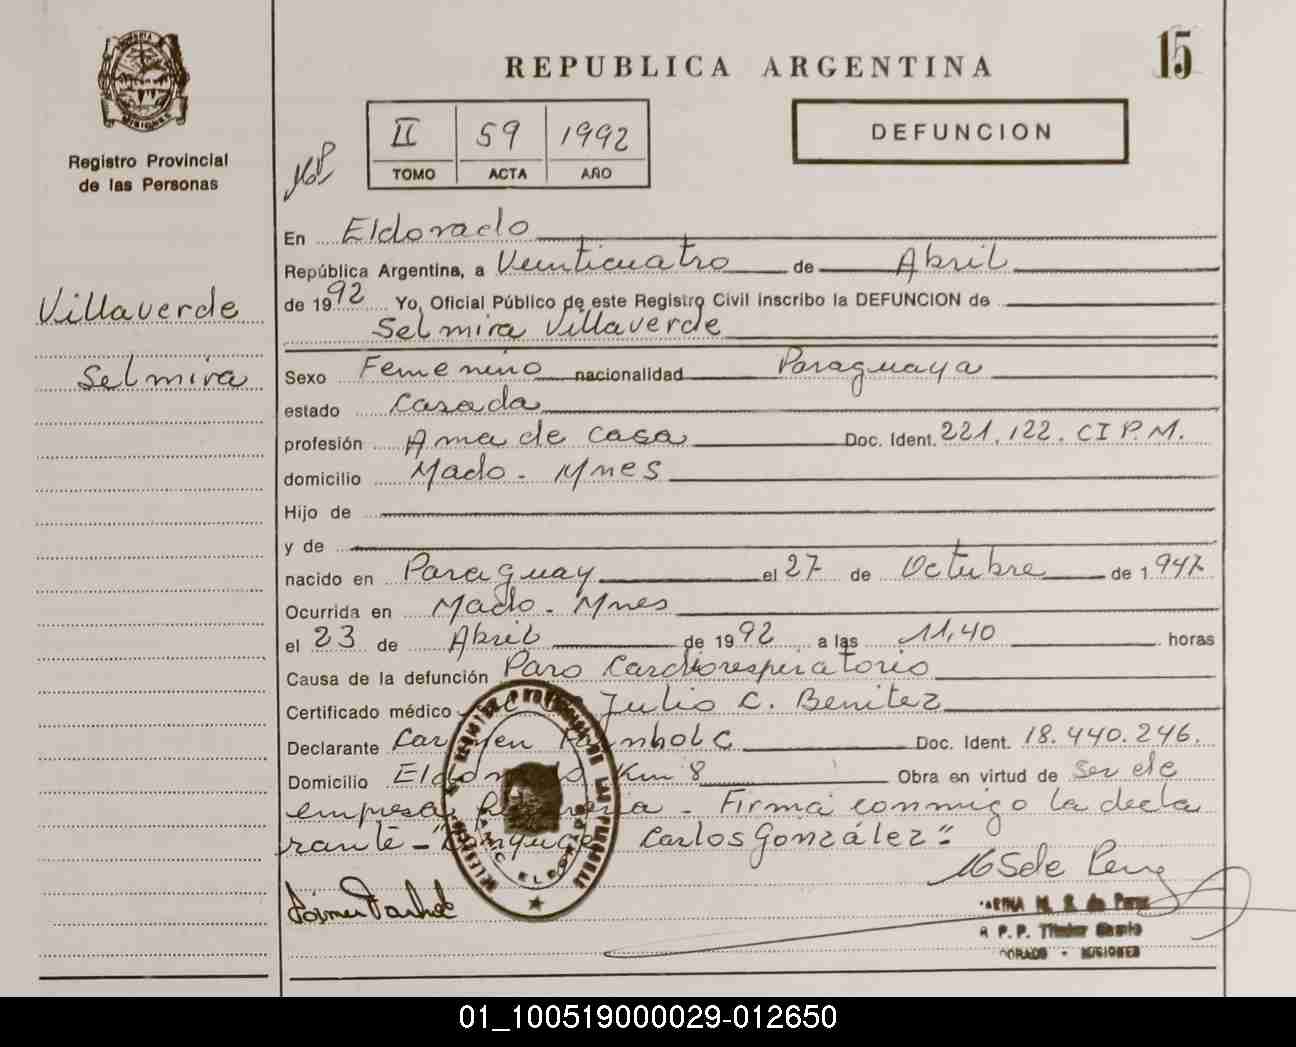 15
REPUBLICA ARGENTINA
MISIONES
Registro Provincial
de las Personas
II 59 1992
TOMO ACTA AÑO
DEFUNCION
Villaverde
Selmira
En Eldorado
República Argentina, a Veinticuatro de Abril
de 1992 Yo, Oficial Público de este Registro Civil inscribo la DEFUNCION de
Selmira Villaverde
Sexo Femenino nacionalidad Paraguaya
estado Casada
profesión Ama de casa Doc. Ident. 221.122. CI P.M.
domicilio Mado - Mnes
Hijo de
y de
nacido en Paraguay el 27 de Octubre de 1947
Ocurrida en Mado - Mnes
el 23 de Abril de 1992 a las 11,40 horas
Causa de la defunción Paro Cardiorespiratorio
Certificado médico Julio C. Benitez
Declarante Carmen Doc. Ident. 18.440.246.
Domicilio Eldorado Km 8 Obra en virtud de ser de
empresa - Firma conmigo la decla
rante - Carlos González"-
M. S. de Perez
P. P. Titular
ELDORADO
DORADO - MISIONES
01_100519000029-012650